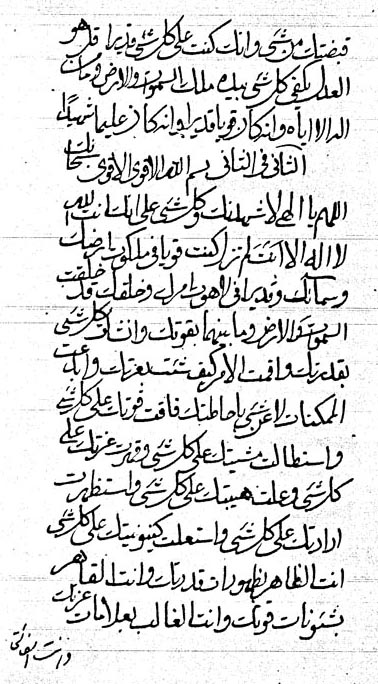 قبضتك من شئ وانك كنت على كل شئ قديرا قل هو
العدل يكفى كل شئ بيده ملك السموات والارض وما بينهما
اله الا اياه وانه كان قويا قديرا وانه كان عليما
الثانى فى الثانى بسم الله الاقوى الاقوى سبحانك
اللهم يا الهى لاشهدنك وكل شئ على انك انت الله
لا اله الا انت لم تزل كنت قويا فى ملكوت ارضك
وسمائك وقديرا فى لاهوت امرك وخلقك قد خلقت
السموات والارض وما بينهما بقوتك وانت كل شئ
بقدرتك واقمت الامر كيف شئت بعزتك وابدعت
الممكنات لا عن شئ باحاطتك فاقت قوتك على كل شئ
واستطالت مشيتك على كل شئ وقهرت عزتك على
كل شئ وعلت هيبتك على كل شئ واستظهرت
ارادتك على كل شئ واستعلت كينونيتك على كل شئ
انت الظاهر بظهورات قدرتك وانت القاهر
بشئونات قوتك وانت الغالب بعلامات عزتك
وانت